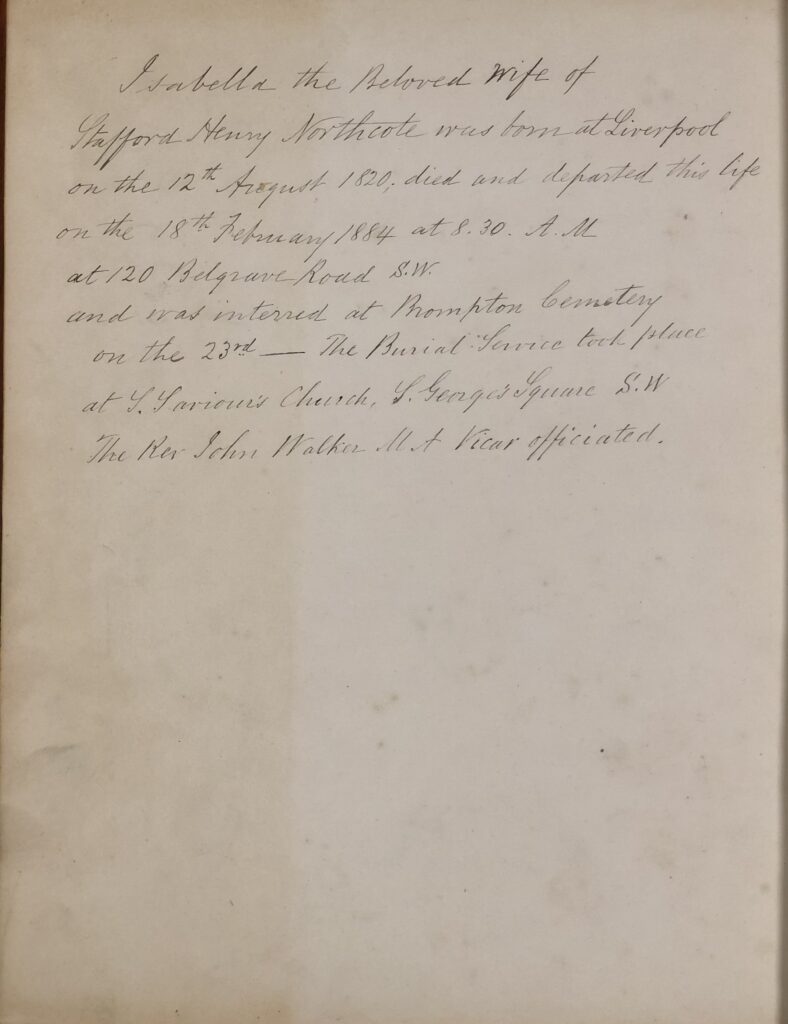 Isabella the Beloved Wife of
Stafford Henry Northcote was born at Liverpool
on the 12th August 1820; died and departed this life
on the 18th February 1884 at 8.30. A.M
at 120 Belgrave Road S.W.
and was interred at Brompton Cemetery
on the 23rd — The Burial Service took place
at S. Saviour's Church, S. George's Square S.W
The Rev John Walker M A Vicar officiated.